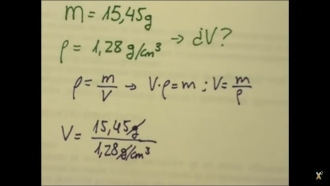 m = 15,45g
ρ = 1,28 g/cm³ → ¿V?
ρ = m/V → V·ρ = m ; V = m/ρ
V = 15,45g / 1,28 g/cm³